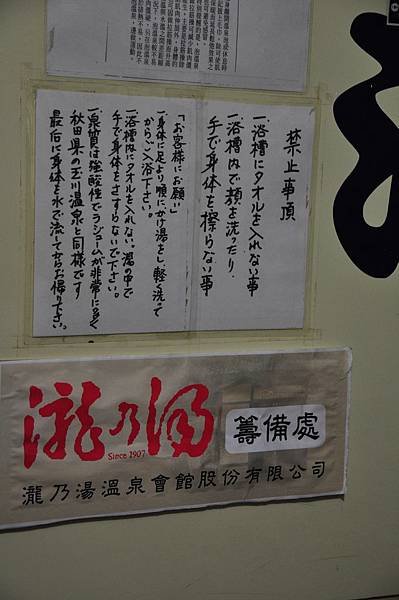 禁止事項
一.浴槽にタオルを入れない事
一.浴槽内で顔を洗ったり、
手で身体を擦らない事
「お客様にお願い」
一.身体に足より順にかけ湯をし、軽く洗って
からご入浴下さい。
一.浴槽内にタオルを入れない。湯の中で
手で身体をさすらないで下さい。
一.泉質は強酸性でラジュームが非常に多く
秋田県の玉川温泉と同様です
最后に身体を水で洗てからお帰り下さい。
瀧乃湯
Since 1907
籌備處
瀧乃湯溫泉會館股份有限公司